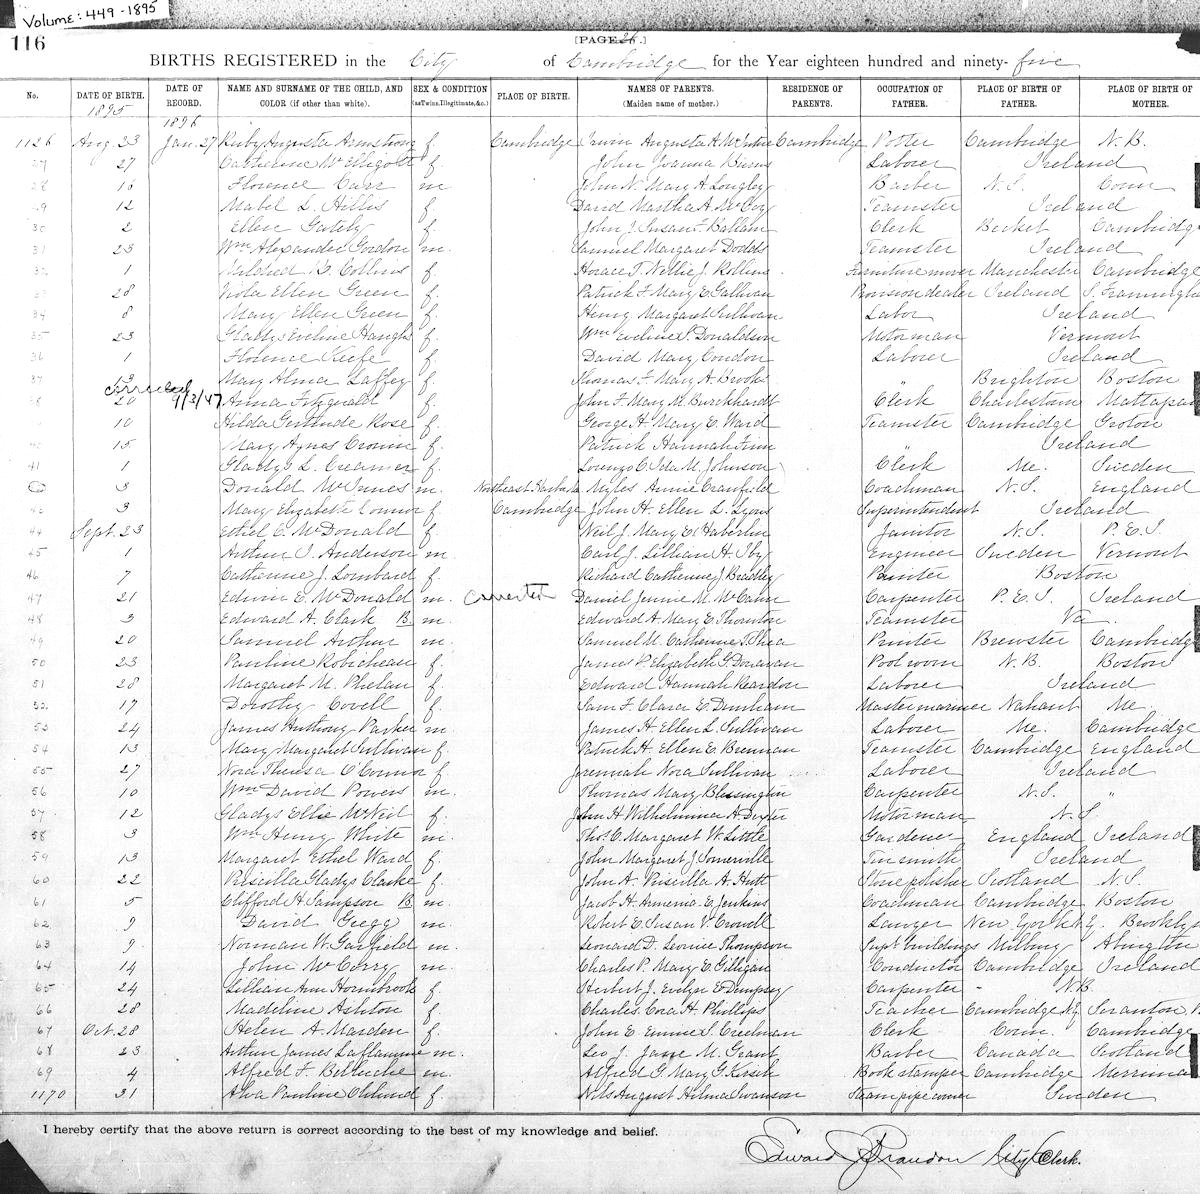 Volume: 449-1895
116
[PAGE 26.]
BIRTHS REGISTERED in the City of Cambridge for the Year eighteen hundred and ninety-five
No. DATE OF BIRTH. DATE OF RECORD. NAME AND SURNAME OF THE CHILD, AND COLOR (if other than white). SEX & CONDITION (as Twins, Illegitimate, &c.) PLACE OF BIRTH. NAMES OF PARENTS. (Maiden name of mother.) RESIDENCE OF PARENTS. OCCUPATION OF FATHER. PLACE OF BIRTH OF FATHER. PLACE OF BIRTH OF MOTHER.
1895 1896
1126 Aug. 23 Jan. 27 Ruby Augusta Armstrong f. Cambridge Augusta A. McIntire Cambridge Potter Cambridge N.B.
27 27 Catherine McElligott f. John Joanna Burns Laborer Ireland
28 16 Florence Carr m John N. Mary A. Longley Barber N.S. Conn
29 12 Mabel L. Hillis f. David Martha A. McCoy Teamster Ireland
30 2 Ellen Gately f. John J. Susan F. Clerk Becket Cambridge
31 23 Wm Alexander Gordon m. Samuel Margaret Dodds Teamster Ireland
32 1 Mildred G. Collins f. Horace T. Nellie J. Rollins Furniture mover Manchester Cambridge
33 28 Viola Ellen Green f. Patrick F. Mary E. Gallivan Provision dealer Ireland S. Framingham
34 8 Mary Ellen Green f. Henry Margaret Sullivan Labor Ireland
35 23 Gladys Eveline f. Wm Eveline S. Donaldson Motorman Vermont
36 1 Florence Keefe f. David Mary Condon Laborer Ireland
37 13 Mary Alma Laffey f. Thomas F. Mary A. Brooks " Brighton Boston
corrected 9/3/47
38 20 Anna Fitzgerald f. John F. Mary M. Burckhardt Clerk Charlestown Mattapan
10 Hilda Gertrude Rose f. George H. Mary E. Ward Teamster Cambridge Groton
40 15 Mary Agnes Cronin f. Patrick Hannah Finn " Ireland
41 1 Gladys L. Creamer f. Lorenzo C. Ida M. Johnson Clerk Me. Sweden
3 Donald McInnes m. Northeast Harbor Myles Annie Cranfield Coachman N.S. England
43 3 Mary Elizabeth Connor f. Cambridge John H. Ellen L. Lyons Superintendent Ireland
44 Sept. 23 Ethel C. McDonald f. Neil J. Mary E. Haberlin Janitor N.S. P.E.I.
45 1 Arthur S. Anderson m. Carl J. Lillian A. Engineer Sweden Vermont
46 7 Catherine J. Lombard f. Richard Catherine J. Bradley Painter Boston
47 21 Edwin E. McDonald m. corrected Daniel Jennie M. McCann Carpenter P.E.I. Ireland
48 3 Edward A. Clark B. m. Edward A. Mary E. Thornton Teamster Va.
49 20 Samuel Arthur m. Samuel M. Catherine T. Shea Printer Brewster Cambridge
50 23 Pauline Robicheau f. James P. Elizabeth G. Donavan Pool room N.B. Boston
51 28 Margaret M. Phelan f. Edward Hannah Reardon Laborer Ireland
52 17 Dorothy Covell f. Sam F. Clara E. Dunham Master mariner Nahant Me.
53 24 James Anthony Parker m. James H. Ellen L. Sullivan Laborer Me. Cambridge
54 13 Mary Margaret Sullivan f. Patrick H. Ellen E. Brennan Teamster Cambridge England
55 27 Nora Theresa O'Connor f. Jeremiah Nora Sullivan Laborer Ireland
56 10 Wm David Powers m. Thomas Mary Blessington Carpenter N.S. "
57 12 Gladys Ellie McNeil f. John H. Wilhelmina A. Dexter Motorman N.S.
58 3 Wm Henry White m. Thos. C. Margaret W. Little Gardener England Ireland
59 13 Margaret Ethel Ward f. John Margaret J. Somerville Tinsmith Ireland
60 22 Priscilla Gladys Clarke f. John A. Priscilla A. Hutt Stone polisher Scotland N.S.
61 5 Clifford H. Sampson B. m. Jacob H. Armenia E. Jenkins Coachman Cambridge Boston
62 9 David Gregg m. Robert E. Susan V. Crowell Lawyer New York N.Y. Brooklyn
63 9 Norman W. Garfield m. Leonard D. Leonice Thompson Supt buildings Abington
64 14 John McCorry m. Charles P. Mary E. Gilligan Conductor Cambridge Ireland
65 24 Lillian Ann Hornbrook f. Herbert J. Evelyn E. Dempsey Carpenter N.B.
66 28 Madeline Ashton f. Charles Cora H. Phillips Teacher Cambridge N.Y. Scranton
67 Oct. 28 Helen A. Marden f. John E. Emma S. Creelman Clerk Conn. Cambridge
68 23 Arthur James Laflamme m. Leo J. Jane M. Grant Barber Canada Scotland
69 4 Alfred F. m. Alfred G. Mary G. Kirsch Book stamper Cambridge Merrimac
1170 31 Alva Pauline f. Nils August Hilma Swanson Steam pipe cover Sweden
I hereby certify that the above return is correct according to the best of my knowledge and belief.
Edward J. Brandon City Clerk.